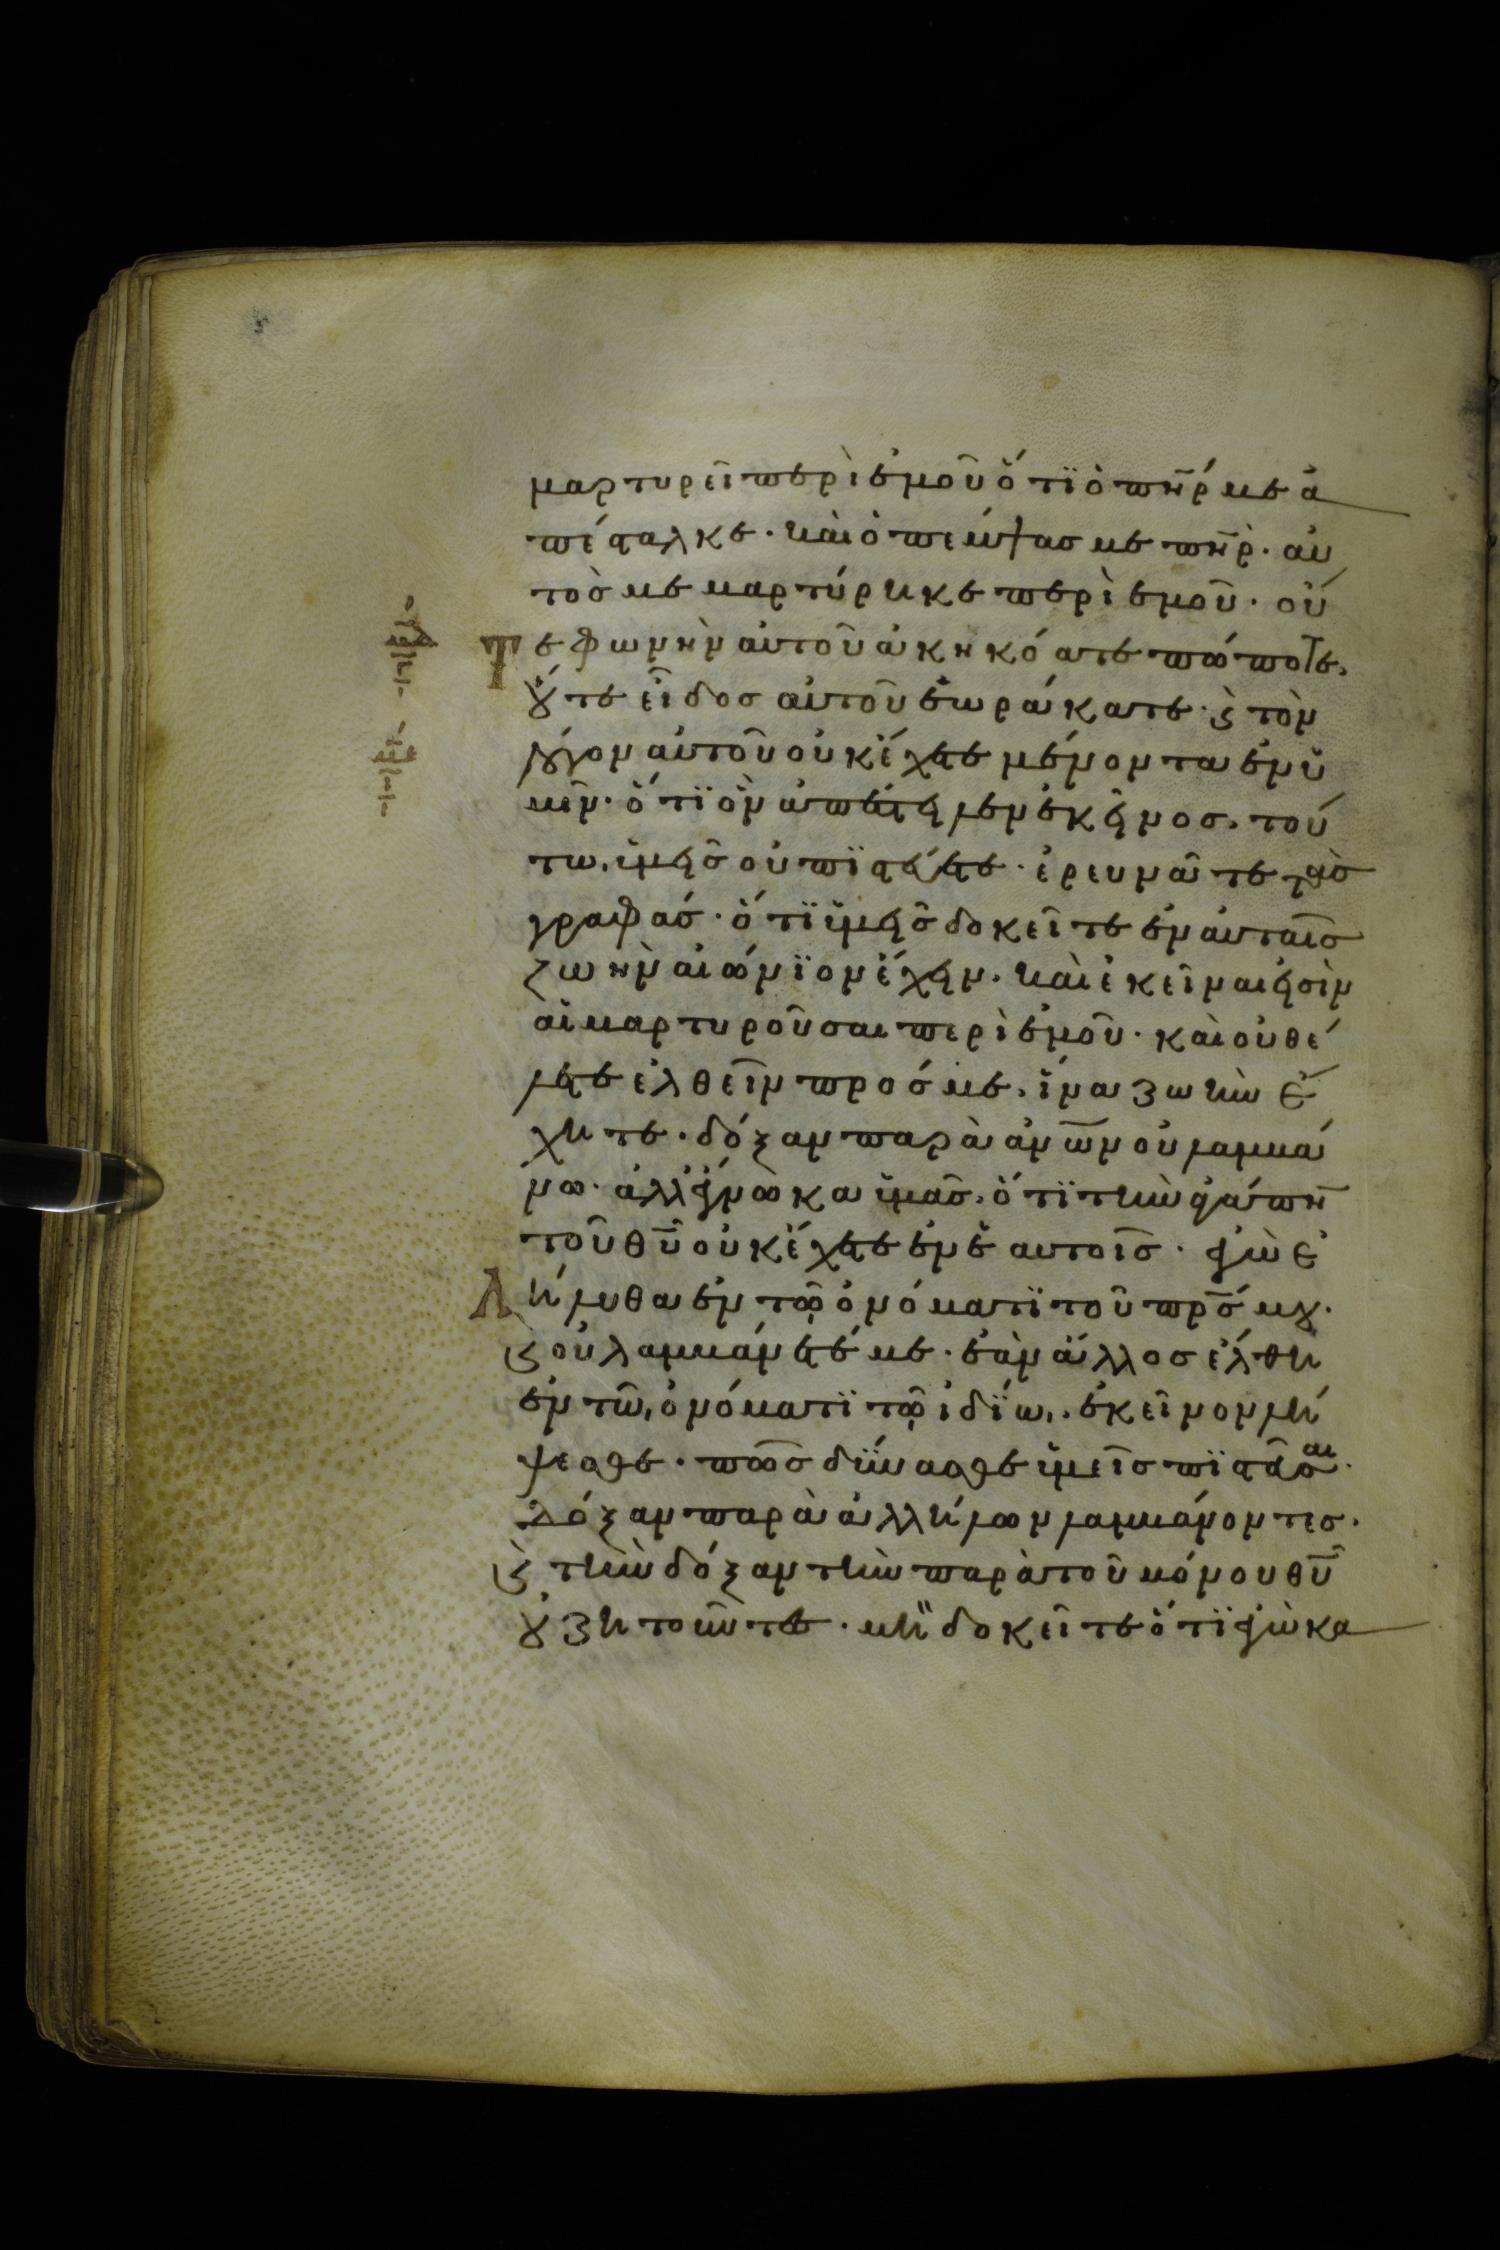 μαρτυρεῖ περὶ ἐμοῦ ὅτϊ ὁ πη̅ρ με ἀ
πέσταλκε· καὶ ὁ πέμψας με πη̅ρ· αὐ
τὸς μεμαρτύρηκε περὶ ἐμοῦ· οὔ
τε φωνὴν αὐτοῦ ἀκηκόατε πώποτε,
οὔτε εἶδος αὐτοῦ ἑωράκατε· καὶ τὸν
λόγον αὐτοῦ οὐκ ἔχετε μένοντα ἐν ὑ
μῖν· ὅτϊ ὃν ἀπέστειλεν ἐκεῖνος, τού
τω, ὑμεῖς οὐ πϊστεύετε· ἐρευνᾶτε τὰς
γραφάς· ὅτϊ ὑμεῖς δοκεῖτε ἐν αὐταῖς
ζωὴν αἰώνϊον ἔχειν· καὶ ἐκεῖναι εἰσὶν
αἱ μαρτυροῦσαι περὶ ἐμοῦ· καὶ οὐ θέ
λετε ἐλθεῖν πρός με, ἵνα ζωὴν ἔ
χητε· δόξαν παρὰ ἀν̅ων οὐ λαμβά
νω· ἀλλ' ἔγνωκα ὑμᾶς, ὅτϊ τὴν ἀγάπην
τοῦ θ̅υ οὐκ ἔχετε ἐν ἑαυτοῖς· ἐγὼ ἐ
λήλυθα ἐν τῶ ὀνόματϊ τοῦ πρ̅ς μου·
καὶ οὐ λαμβάνετέ με· ἐὰν ἄλλος ἔλθη
ἐν τῶ, ὀνόματϊ τῶ ἰδΐω,· ἐκεῖνον λή
ψεσθε· πῶς δύνασθε ὑμεῖς πϊστεῦσαι·
δόξαν παρὰ ἀλλήλων λαμβάνοντες·
καὶ τὴν δόξαν τὴν παρὰ τοῦ μόνου θ̅υ
οὐ ζητοῦντες· μὴ δοκεῖτε ὅτϊ ἐγὼ κα